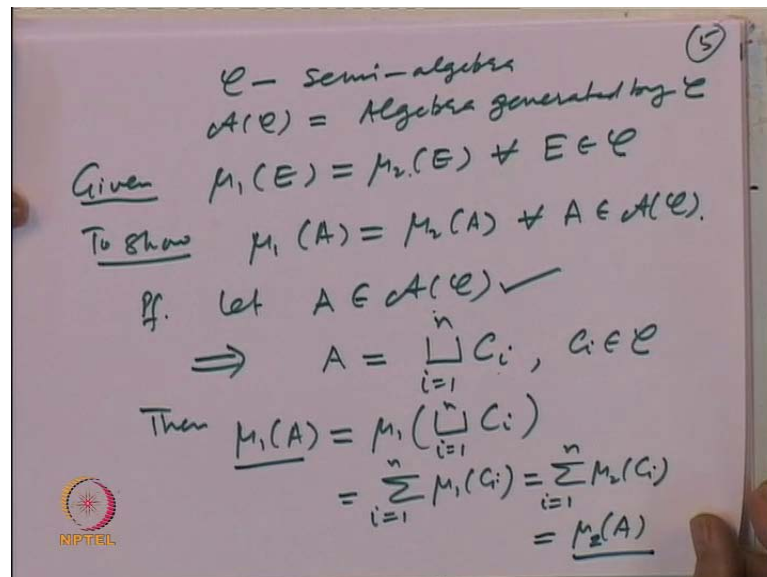 ⑤
𝒞 — semi-algebra
𝒜(𝒞) = Algebra generated by 𝒞
Given μ₁(E) = μ₂(E) ∀ E ∈ 𝒞
To show μ₁(A) = μ₂(A) ∀ A ∈ 𝒜(𝒞).
Pf. Let A ∈ 𝒜(𝒞) ✓
⟹ A = ⊔ᵢ₌₁ⁿ Cᵢ, Cᵢ ∈ 𝒞
Then μ₁(A) = μ₁(⊔ᵢ₌₁ⁿ Cᵢ)
= ∑ᵢ₌₁ⁿ μ₁(Cᵢ) = ∑ᵢ₌₁ⁿ μ₂(Cᵢ)
= μ₂(A)
NPTEL